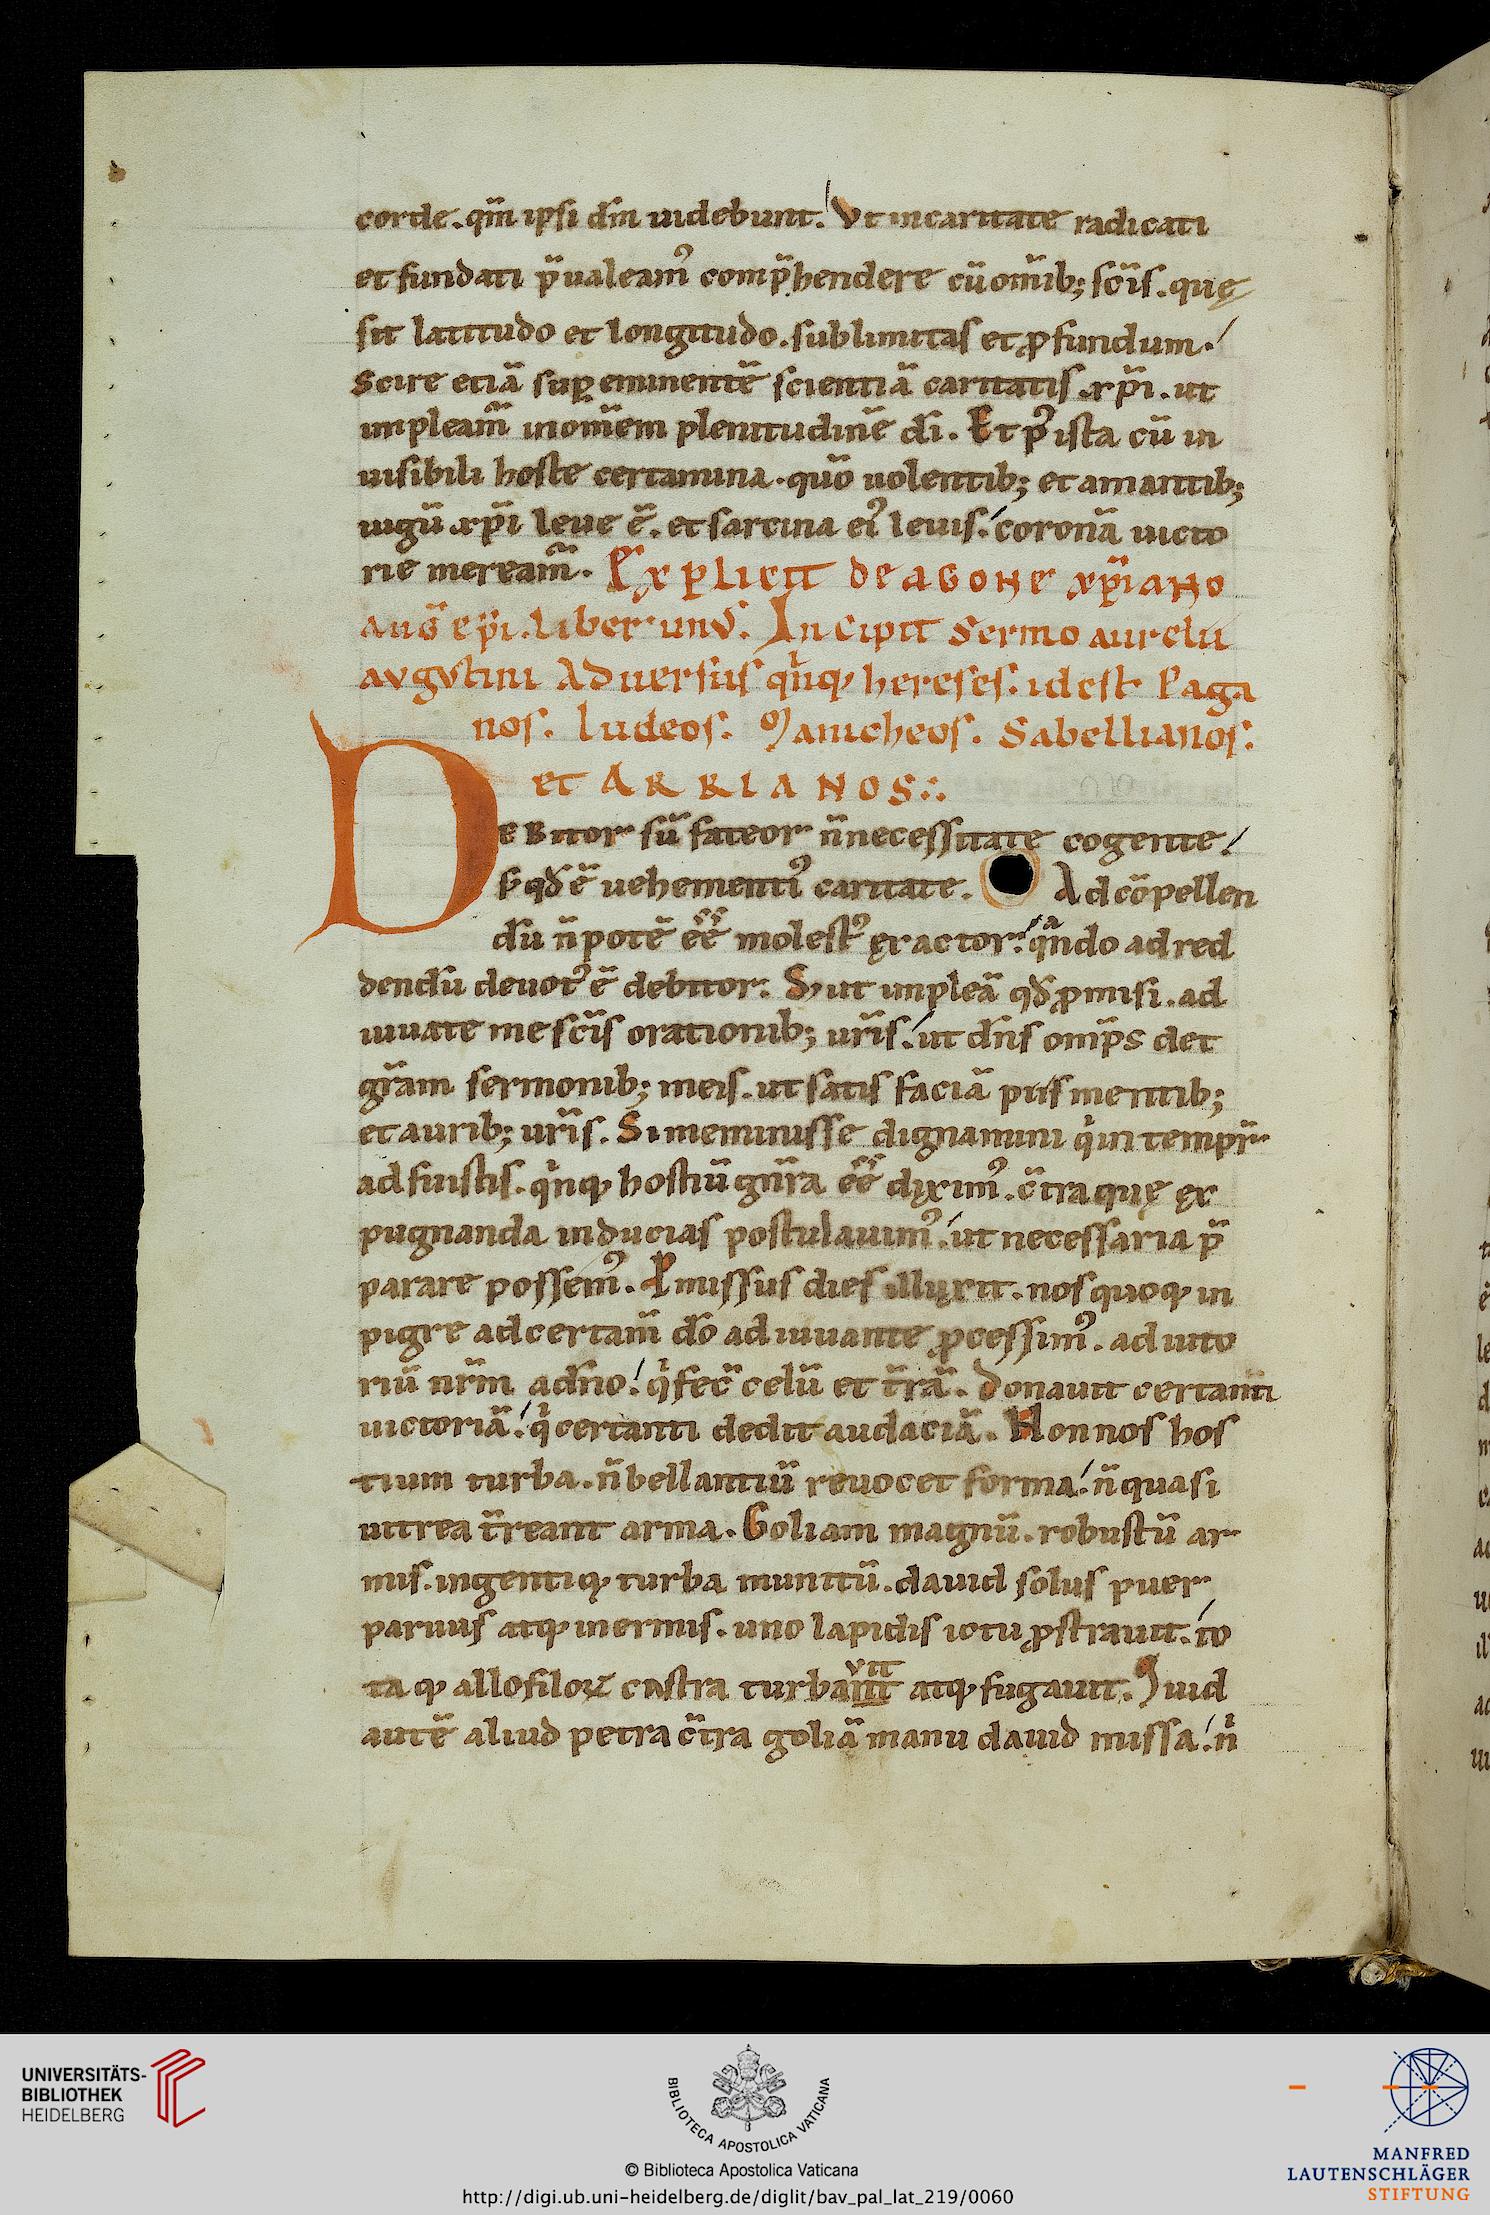 corde. qm̄ ipsi dm̄ uidebunt. Vt in caritate radicati
et fundati p̄ualeam᾽ comp̄hendere cū om̄ib; scīs. quę
sit latitudo et longitudo. sublimitas et ꝓfundum.
Scire etiā suꝑ eminentē scientiā caritatis xp̄i. ut
impleam̄ in om̄em plenitudinē dī. Et p᾽ ista cū in
uisibili hoste certamina. quō uolentib; et amantib;
iugū xp̄i leue ē. et sarcina ei᾽ leuis. coronā uicto
rie meream̄. Explicit de agone xp̄iano
aug̅ ep̄i. liber unꝰ. Incipit Sermo aurelii
avgvstini Aduersus q̇nq; hereses. id est Paga
nos. Iudeos. Manicheos. Sabellianos.
et ARRIANOS:.
DEBitor sū fateor n̄ necessitate cogente.
s; qđ ē uehementi᾽ caritate. Ad cōpellen
dū n̄ potē ēē molest᾽ ęxactor. qn̄do ad red
dendū deuot᾽ ē debitor. S; ut impleā qđ ꝓmisi. ad
iuuate me scīs orationib; ur̄is. ut dn̄s om̄ps det
gr̄am sermonib; meis. ut satis faciā piis mentib;
et aurib; ur̄is. Si meminisse dignamini q̇ in tempr̄
adfuistis. q̇nq; hostiū gn̄ra ēē dixim᾽. c̄tra quę ęx
pugnanda inducias postulauim᾽. ut necessaria p̄
parare possem᾽. Pmissus dies illuxit. nos quoq; in
pigre ad certam̄ dō adiuuante ꝓcessim᾽. adiuto
riū nr̄m a dn̄o. q̇ fec̄ celū et t̄rā. Donauit certanti
uictoriā. q̇ certanti dedit audaciā. Non nos hos
tium turba. n̄ bellantiū reuocet forma. n̄ quasi
uitrea t̄reant arma. Goliam magnū. robustū ar
mis. ingentiq; turba munitū. dauid solus puer
paruus atq; inermis. uno lapidis ictu ꝓstrauit. to
taq; allofiloꝝ castra turbauit atq; fugauit. Quid
autē aliud petra c̄tra goliā manu dauid missa. n̄
UNIVERSITÄTS-
BIBLIOTHEK
HEIDELBERG
BIBLIOTECA APOSTOLICA VATICANA
© Biblioteca Apostolica Vaticana
http://digi.ub.uni-heidelberg.de/diglit/bav_pal_lat_219/0060
MANFRED
LAUTENSCHLÄGER
STIFTUNG